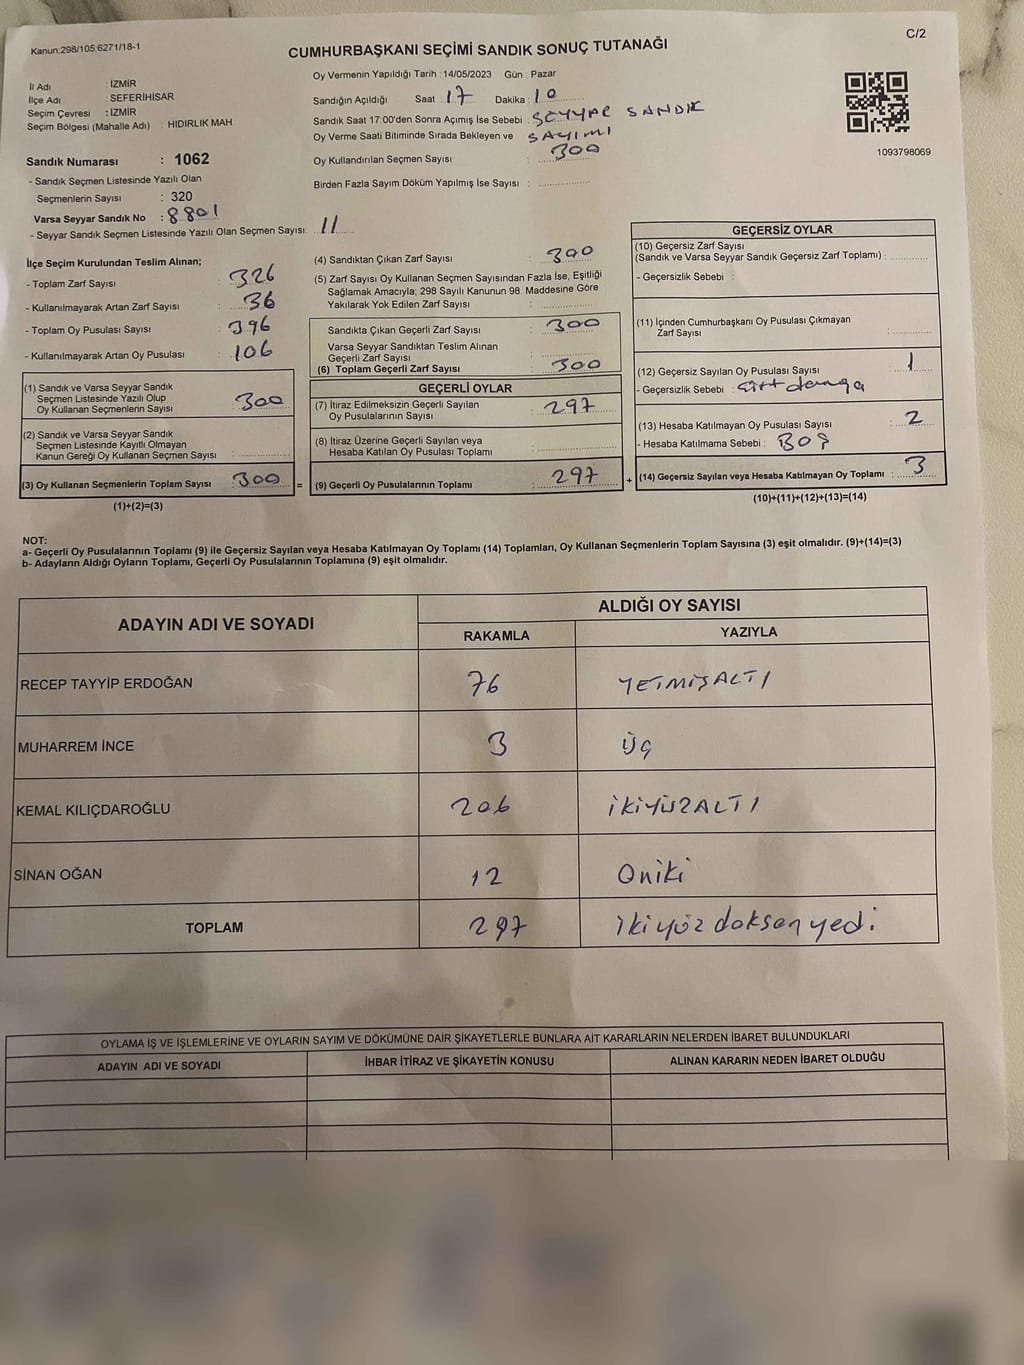 Kanun:298/105;6271/18-1
C/2
CUMHURBAŞKANI SEÇİMİ SANDIK SONUÇ TUTANAĞI
İl Adı : İZMİR
İlçe Adı : SEFERİHİSAR
Seçim Çevresi : İZMİR
Seçim Bölgesi (Mahalle Adı) : HIDIRLIK MAH.
Sandık Numarası : 1062
- Sandık Seçmen Listesinde Yazılı Olan
Seçmenlerin Sayısı : 320
Varsa Seyyar Sandık No : 8801
- Seyyar Sandık Seçmen Listesinde Yazılı Olan Seçmen Sayısı: 11
Oy Vermenin Yapıldığı Tarih : 14/05/2023 Gün : Pazar
Sandığın Açıldığı Saat 17 Dakika : 10
Sandık Saat 17:00'den Sonra Açımış İse Sebebi : SEYYAR SANDIK
Oy Verme Saati Bitiminde Sırada Bekleyen ve SAYIMI
Oy Kullandırılan Seçmen Sayısı : 300
Birden Fazla Sayım Döküm Yapılmış İse Sayısı :
1093798069
İlçe Seçim Kurulundan Teslim Alınan;
- Toplam Zarf Sayısı : 326
- Kullanılmayarak Artan Zarf Sayısı : 36
- Toplam Oy Pusulası Sayısı : 396
- Kullanılmayarak Artan Oy Pusulası : 106
(1) Sandık ve Varsa Seyyar Sandık
Seçmen Listesinde Yazılı Olup
Oy Kullanan Seçmenlerin Sayısı : 300
(2) Sandık ve Varsa Seyyar Sandık
Seçmen Listesinde Kayıtlı Olmayan
Kanun Gereği Oy Kullanan Seçmen Sayısı :
(3) Oy Kullanan Seçmenlerin Toplam Sayısı : 300 =
(1)+(2)=(3)
(4) Sandıktan Çıkan Zarf Sayısı : 300
(5) Zarf Sayısı Oy Kullanan Seçmen Sayısından Fazla İse, Eşitliği
Sağlamak Amacıyla; 298 Sayılı Kanunun 98. Maddesine Göre
Yakılarak Yok Edilen Zarf Sayısı :
Sandıkta Çıkan Geçerli Zarf Sayısı : 300
Varsa Seyyar Sandıktan Teslim Alınan
Geçerli Zarf Sayısı :
(6) Toplam Geçerli Zarf Sayısı : 300
GEÇERLİ OYLAR
(7) İtiraz Edilmeksizin Geçerli Sayılan
Oy Pusulalarının Sayısı : 297
(8) İtiraz Üzerine Geçerli Sayılan veya
Hesaba Katılan Oy Pusulası Toplamı :
(9) Geçerli Oy Pusulalarının Toplamı : 297 +
GEÇERSİZ OYLAR
(10) Geçersiz Zarf Sayısı
(Sandık ve Varsa Seyyar Sandık Geçersiz Zarf Toplamı) :
- Geçersizlik Sebebi :
(11) İçinden Cumhurbaşkanı Oy Pusulası Çıkmayan
Zarf Sayısı :
(12) Geçersiz Sayılan Oy Pusulası Sayısı : 1
- Geçersizlik Sebebi : Çift damga
(13) Hesaba Katılmayan Oy Pusulası Sayısı : 2
- Hesaba Katılmama Sebebi : BOŞ
(14) Geçersiz Sayılan veya Hesaba Katılmayan Oy Toplamı : 3
(10)+(11)+(12)+(13)=(14)
NOT:
a- Geçerli Oy Pusulalarının Toplamı (9) ile Geçersiz Sayılan veya Hesaba Katılmayan Oy Toplamı (14) Toplamları, Oy Kullanan Seçmenlerin Toplam Sayısına (3) eşit olmalıdır. (9)+(14)=(3)
b- Adayların Aldığı Oyların Toplamı, Geçerli Oy Pusulalarının Toplamına (9) eşit olmalıdır.
ADAYIN ADI VE SOYADI
ALDIĞI OY SAYISI
RAKAMLA YAZIYLA
RECEP TAYYİP ERDOĞAN 76 YETMİŞALTI
MUHARREM İNCE 3 üç
KEMAL KILIÇDAROĞLU 206 İKİYÜZALTI
SİNAN OĞAN 12 Oniki
TOPLAM 297 ikiyüz doksan yedi
OYLAMA İŞ VE İŞLEMLERİNE VE OYLARIN SAYIM VE DÖKÜMÜNE DAİR ŞİKAYETLERLE BUNLARA AİT KARARLARIN NELERDEN İBARET BULUNDUKLARI
ADAYIN ADI VE SOYADI İHBAR İTİRAZ VE ŞİKAYETİN KONUSU ALINAN KARARIN NEDEN İBARET OLDUĞU